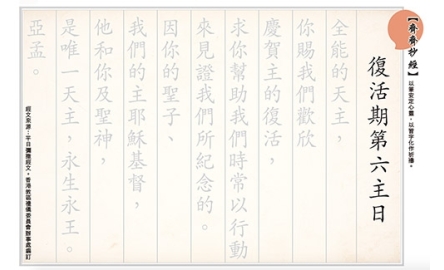 【齊齊抄經】
以筆安定心靈，以習字化作祈禱。
復活期第六主日
全能的天主，
你賜我們歡欣
慶賀主的復活，
求你幫助我們時常以行動
來見證我們所紀念的。
因你的聖子、
我們的主耶穌基督，
他和你及聖神，
是唯一天主，永生永王。
亞孟。
經文來源：平日彌撒經文，香港教區禮儀委員會辦事處編訂